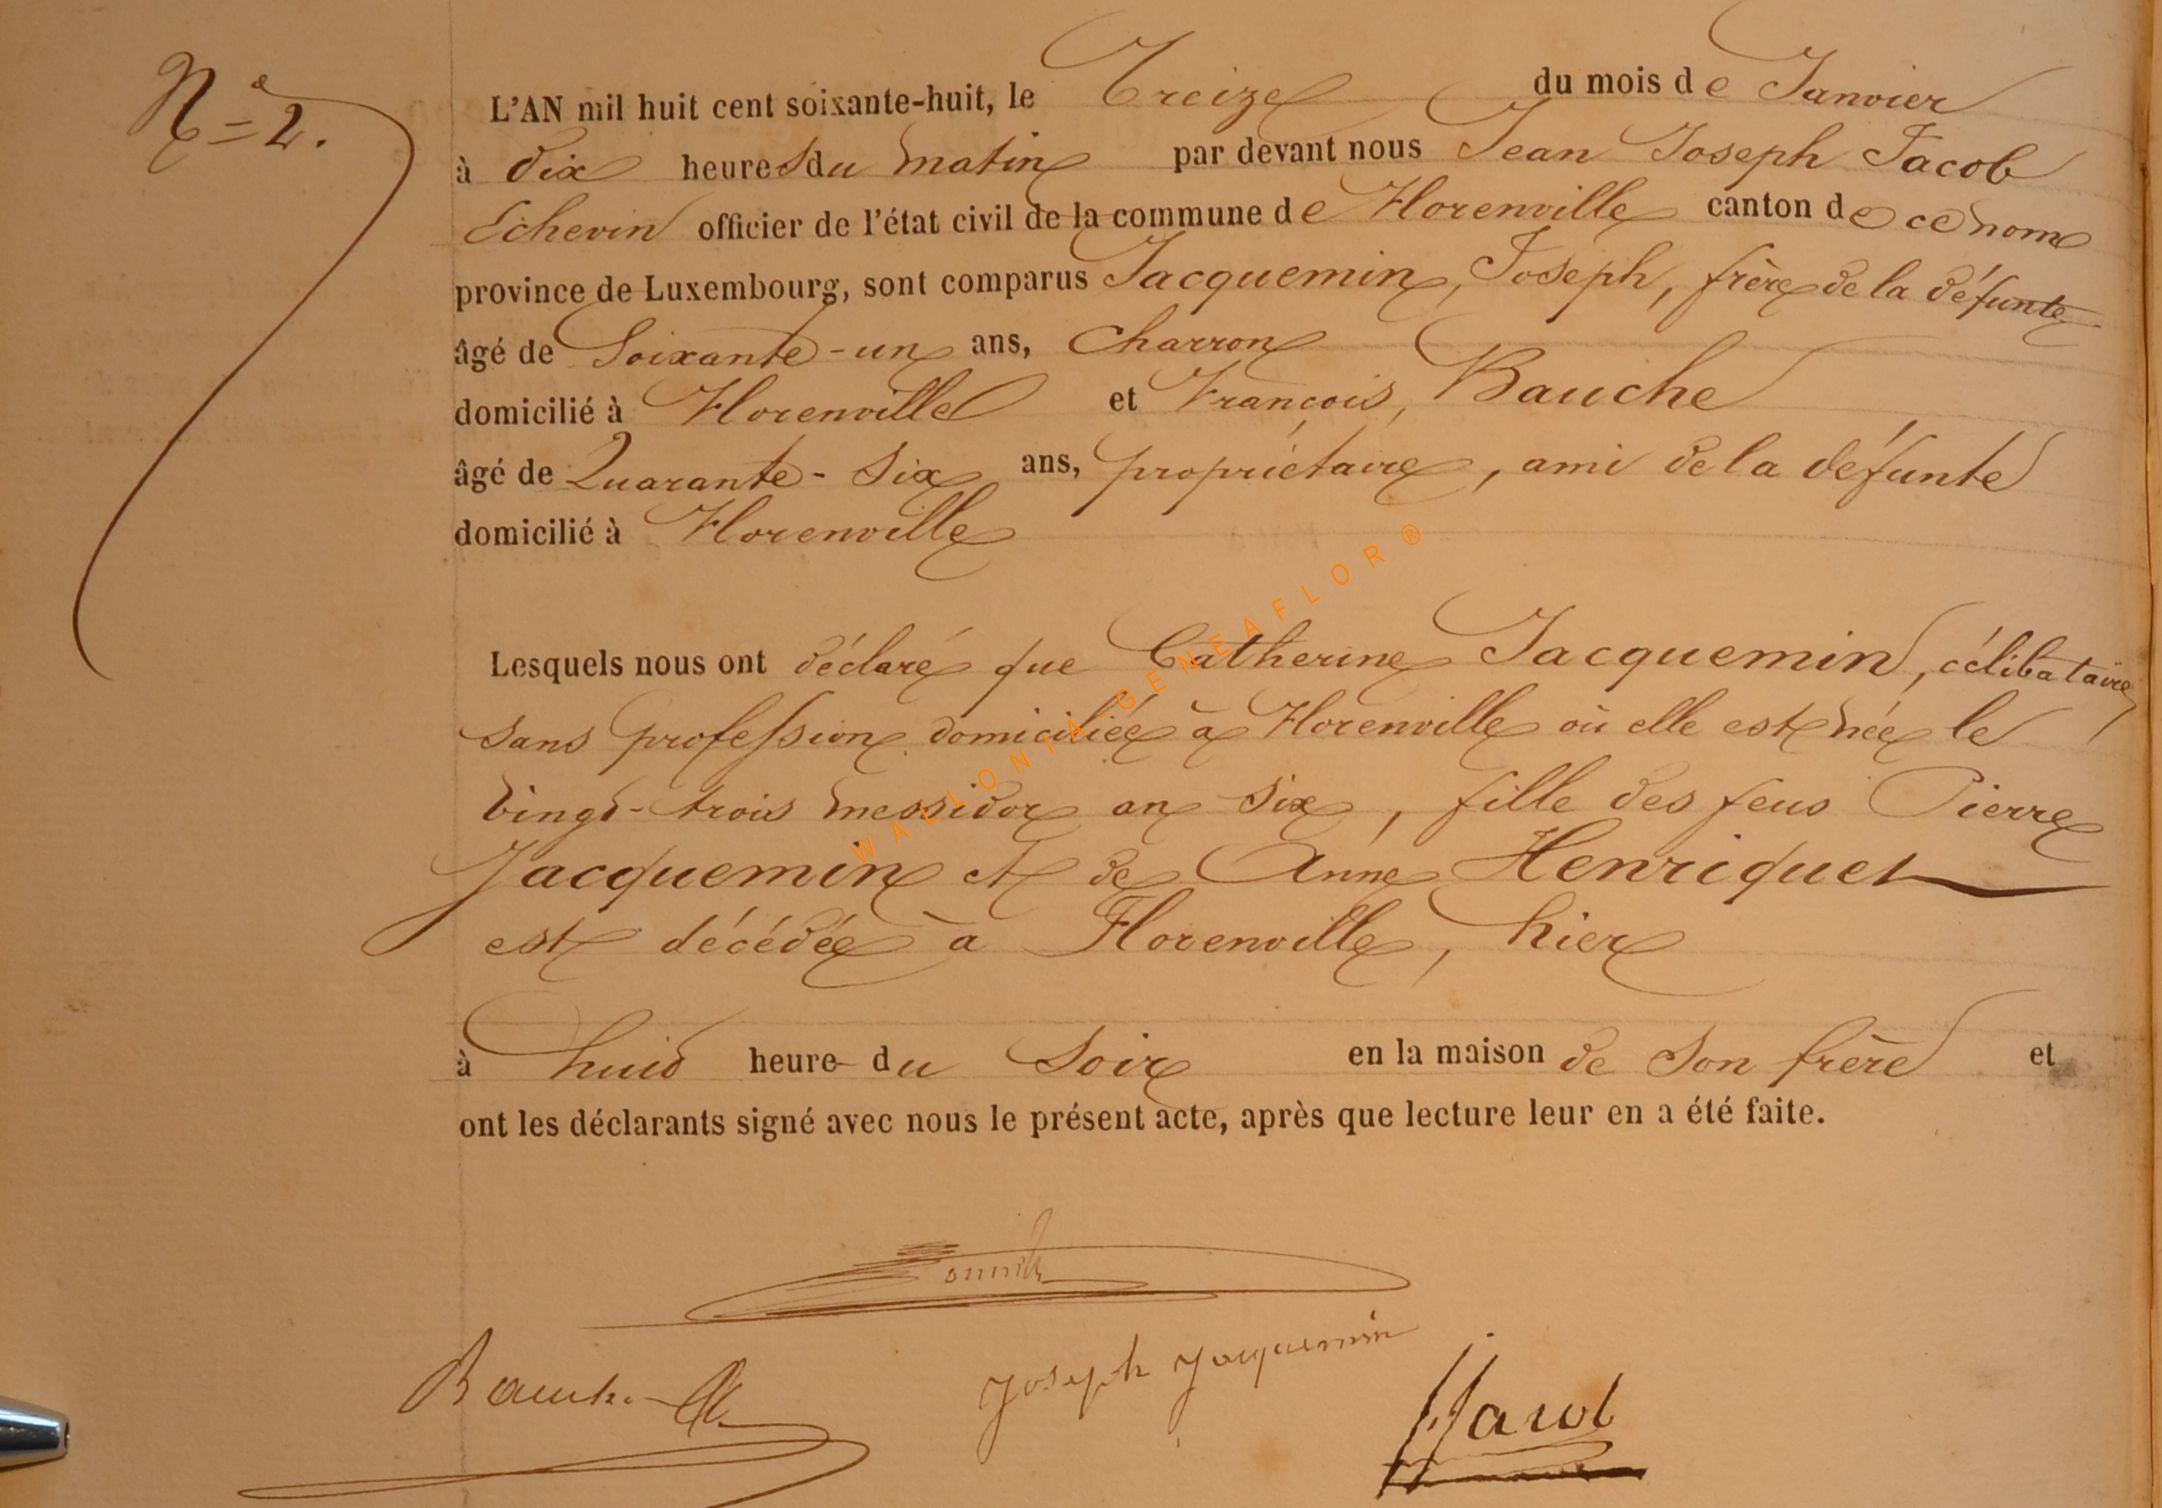 Nº 2.
L'AN mil huit cent soixante-huit, le Treize du mois de Janvier
à dix heures du matin par devant nous Jean Joseph Jacob
Echevin officier de l'état civil de la commune de Florenville canton de ce nom
province de Luxembourg, sont comparus Jacquemin, Joseph, frère de la défunte
âgé de Soixante-un ans, charron
domicilié à Florenville et François, Bauche
âgé de Quarante-Six ans, propriétaire, ami de la défunte
domicilié à Florenville
Lesquels nous ont déclaré que Catherine Jacquemin, célibataire
sans profession domiciliée à Florenville où elle est née le
vingt-trois messidor an six, fille des feus Pierre
Jacquemin et de Anne Henriquet
est décédée à Florenville, hier
à huit heure du soir en la maison de son frère et
ont les déclarants signé avec nous le présent acte, après que lecture leur en a été faite.
Bauche
Joseph Jacquemin
JJacob
WALLONIA-GENEAFLOR®